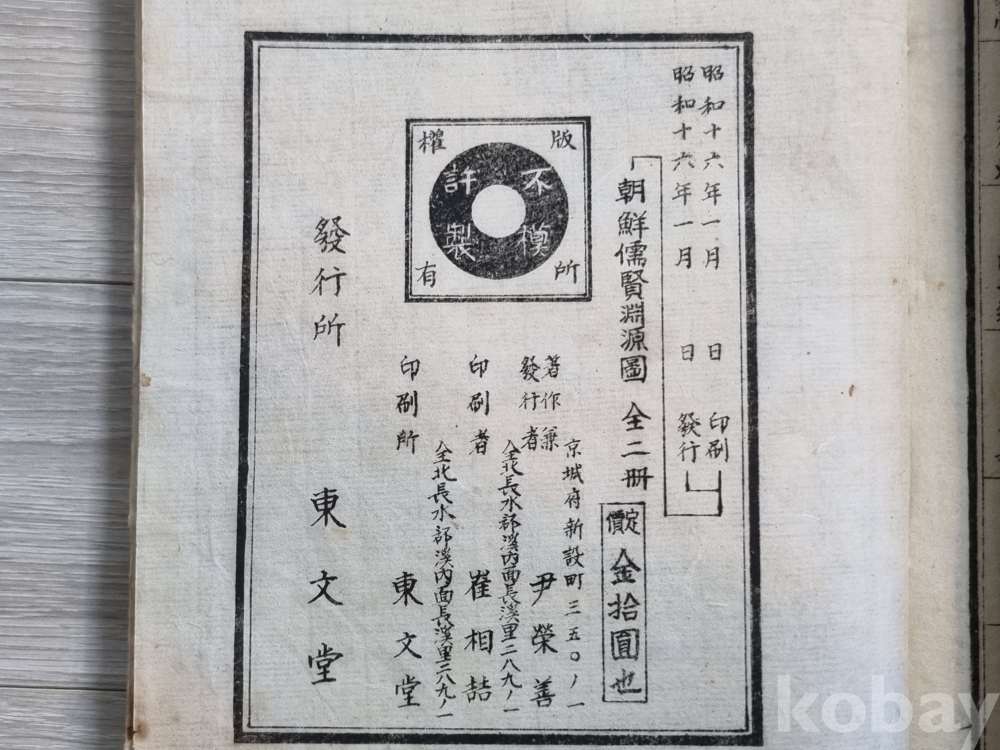 昭和十六年一月 日 印刷
昭和十六年一月 日 發行
朝鮮儒賢淵源圖 全二冊
定價 金拾圓也
版權所有
不許模製
京城府新設町三五〇ノ一
著作兼發行者 尹榮善
全北長水郡溪內面長溪里二八九ノ一
印刷者 崔相喆
全北長水郡溪內面長溪里二八九ノ一
印刷所 東文堂
發行所 東文堂
kobay